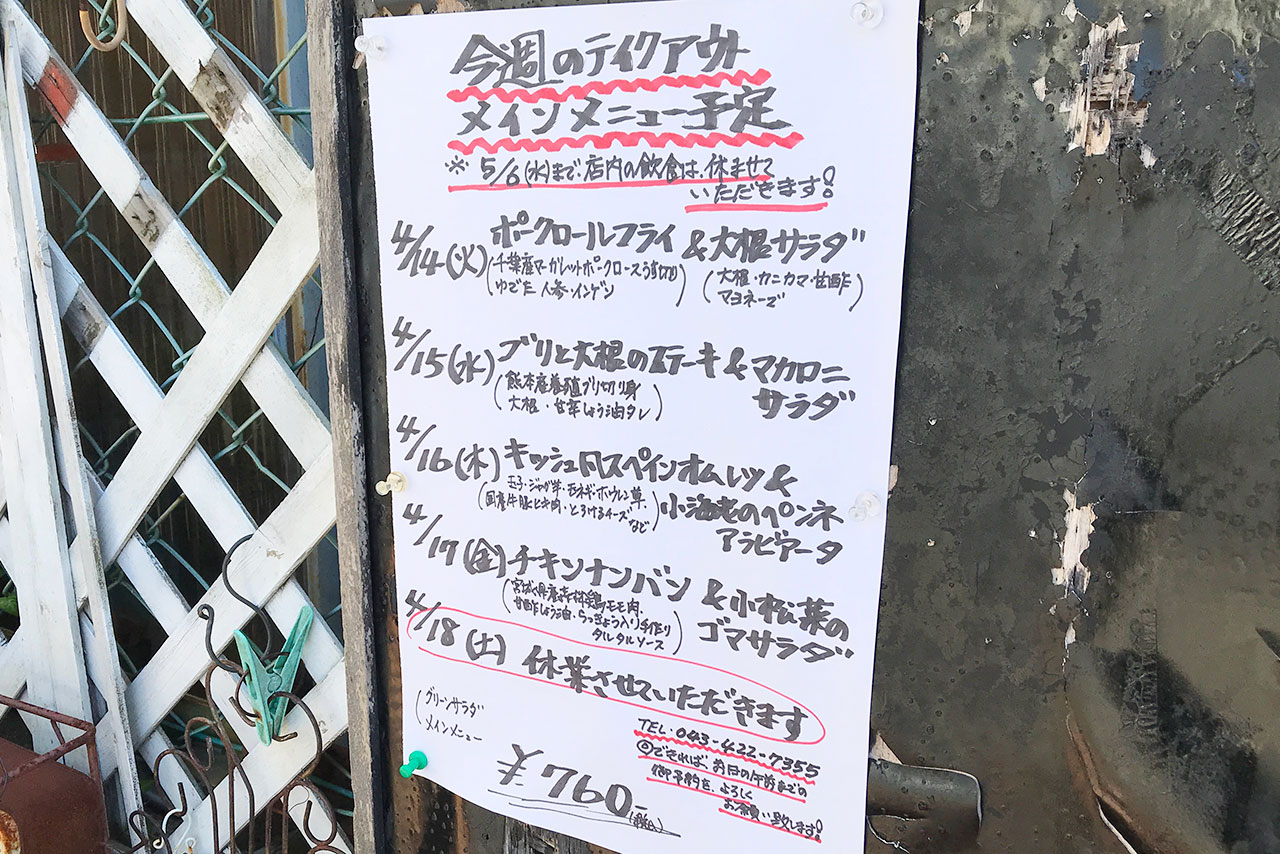 今週のテイクアウト
メインメニュー予定
※5/6(水)まで、店内の飲食は、休ませて
いただきます!
4/14(火) ポークロールフライ & 大根サラダ
(千葉産マーガレットポークロースうす切り
ゆでた人参・インゲン)
(大根・カニカマ・甘酢
マヨネーズ)
4/15(水) ブリと大根のステーキ & マカロニ
サラダ
(熊本産養殖ブリ切り身
大根・甘辛しょう油タレ)
4/16(木) キッシュ風スペインオムレツ &
小海老のペンネ
アラビアータ
(玉子・ジャガ芋・玉ネギ・ホウレン草
国産牛豚ヒキ肉・とろけるチーズなど)
4/17(金) チキンナンバン & 小松菜の
ゴマサラダ
(宮城県産森林鶏モモ肉
甘酢しょう油・らっきょう入り手作り
タルタルソース)
4/18(土) 休業させていただきます
(グリーンサラダ
メインメニュー
¥760-(税込)
TEL・043-422-7355
◎できれば、お日の午前までの
御予約を、よろしく
お願い致します!